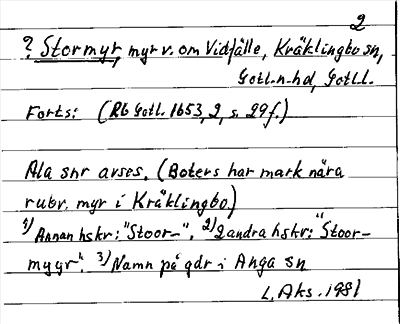 2
? Stormyr, myr v. om Vidfälle, Kräklingbo sn,
Gotl. n. hd, Gotl.l.
Forts: (Rb Gotl. 1653, 2, s. 29 f.)
Ala snr avses. (Boters har mark nära
rubr. myr i Kräklingbo)
1) Annan hskr: "Stoor-". 2) 2 andra hskr: "Stoor-
myyr". 3) Namn på gdr i Anga sn
L. Aks. 1981